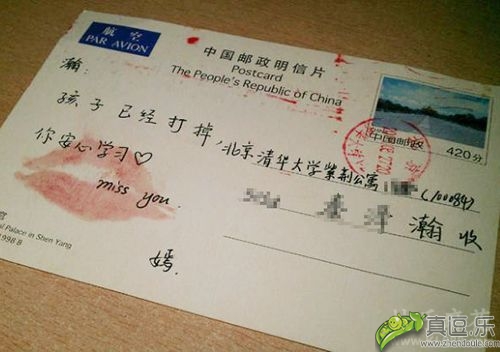 航空
PAR AVION
中国邮政明信片
Postcard
The People's Republic of China
中国邮政
420分
瀚:
孩子已经打掉,
你安心学习♡
miss you.
嫣.
北京清华大学紫荆公寓
(100084)
瀚 收
al Palace in Shen Yang
1998 B
真逗乐
www.zhendoule.com